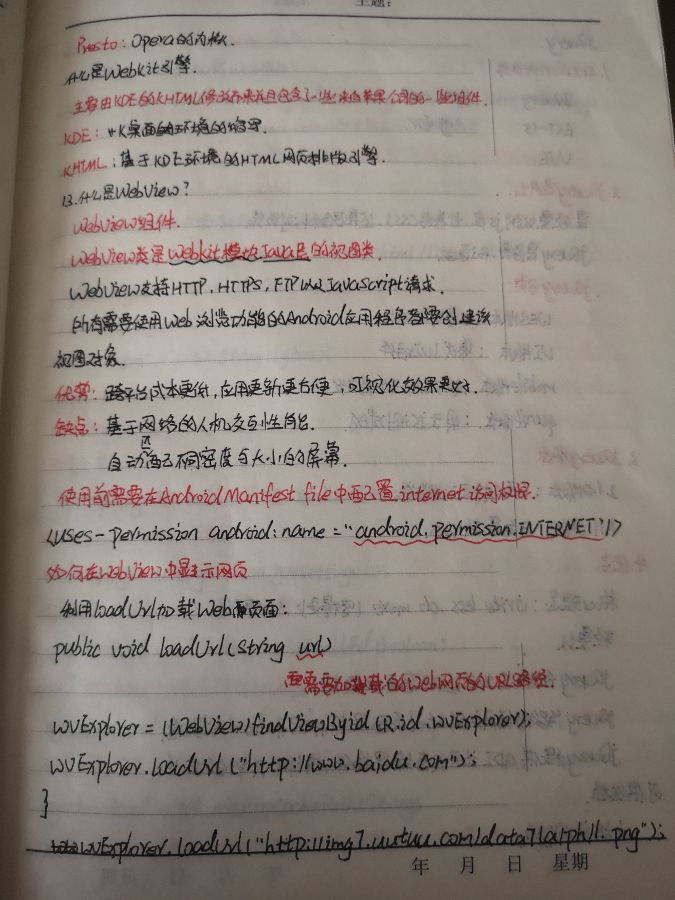 主题:
Presto：Opera的内核.
什么是Webkit引擎.
主要由KDE的KHTML修改而来并且包含了一些来自苹果公司的一些组件.
KDE：K桌面的环境的缩写.
KHTML：基于KDE环境的HTML网页排版引擎.
13.什么是WebView？
WebView组件.
WebView类是Webkit模块Java层的视图类
WebView支持HTTP、HTTPS、FTP以及JavaScript请求.
所有需要使用Web浏览功能的Android应用程序都要创建该
视图对象.
优势：跨平台成本更低,应用更新更方便,可视化效果更好.
缺点：基于网络的人机交互性消耗.
自动匹配不同密度与大小的屏幕.
使用前需要在Android Manifest file中配置internet访问权限.
<uses-permission android:name="android.permission.INTERNET"/>
如何在WebView中显示网页
利用loadUrl加载Web页面：
public void loadUrl(String url)
需要加载的Web网页的URL路径.
wvExplorer=(WebView)findViewByid(R.id.wvExplorer);
wvExplorer.loadUrl("http://www.baidu.com");
}
wvExplorer.loadUrl("http://img7.uutuu.com/data7/a/ph/1.png");
年 月 日 星期